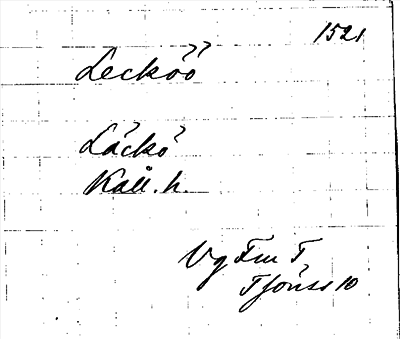 1521
Lecköö
Läckö
Kåll. h.
Vg Fm T
Tjöns 10